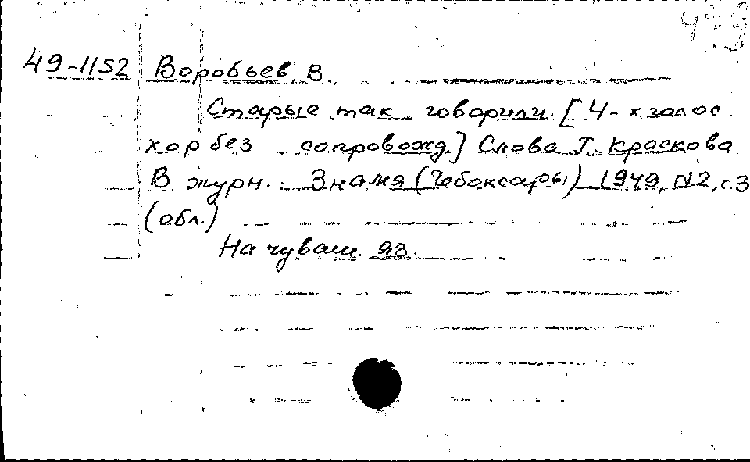 49-1152 Воробьев В.
Старые так говорили. [4-х голос
хор без сопровожд.] Слова Г. Краснова
В журн.: Знамя (Чебоксары) 1949, №2, с.3
(обл.)
На чуваш. яз.